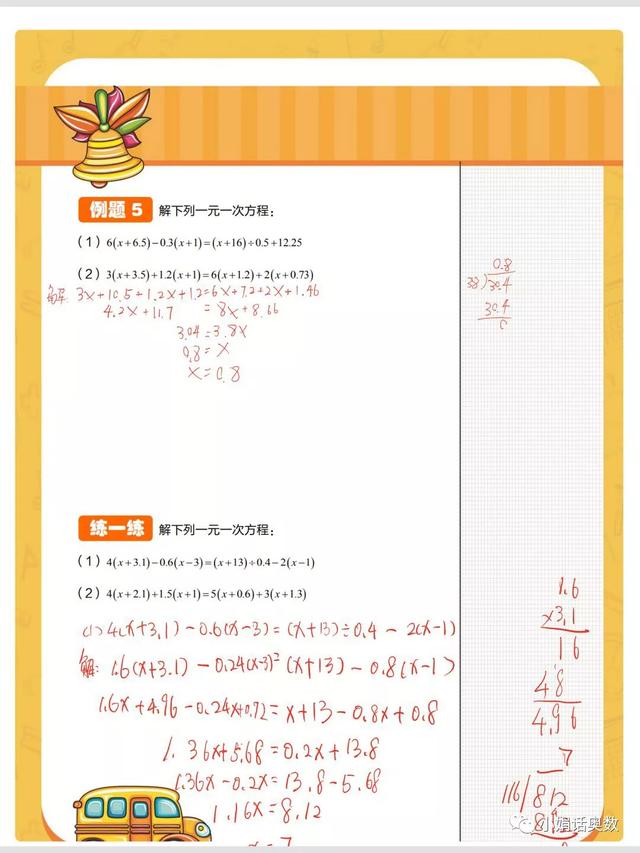 例题 5 解下列一元一次方程:
(1) 6(x+6.5)−0.3(x+1)=(x+16)÷0.5+12.25
(2) 3(x+3.5)+1.2(x+1)=6(x+1.2)+2(x+0.73)
解: 3x+10.5+1.2x+1.2=6x+7.2+2x+1.46
4.2x+11.7 = 8x+8.66
3.04=3.8x
0.8=x
x=0.8
0.8
38)30.4
30.4
0
练一练 解下列一元一次方程:
(1) 4(x+3.1)−0.6(x−3)=(x+13)÷0.4−2(x−1)
(2) 4(x+2.1)+1.5(x+1)=5(x+0.6)+3(x+1.3)
(1) 4(x+3.1)−0.6(x−3)=(x+13)÷0.4−2(x−1)
解: 1.6(x+3.1)−0.24(x-3)=(x+13)−0.8(x−1)
1.6x+4.96−0.24x+0.72=x+13−0.8x+0.8
1.36x+5.68=0.2x+13.8
1.36x−0.2x=13.8−5.68
1.16x=8.12
x=7
1.6
×3.1
16
48
4.96
7
116/812
812
小娟话奥数